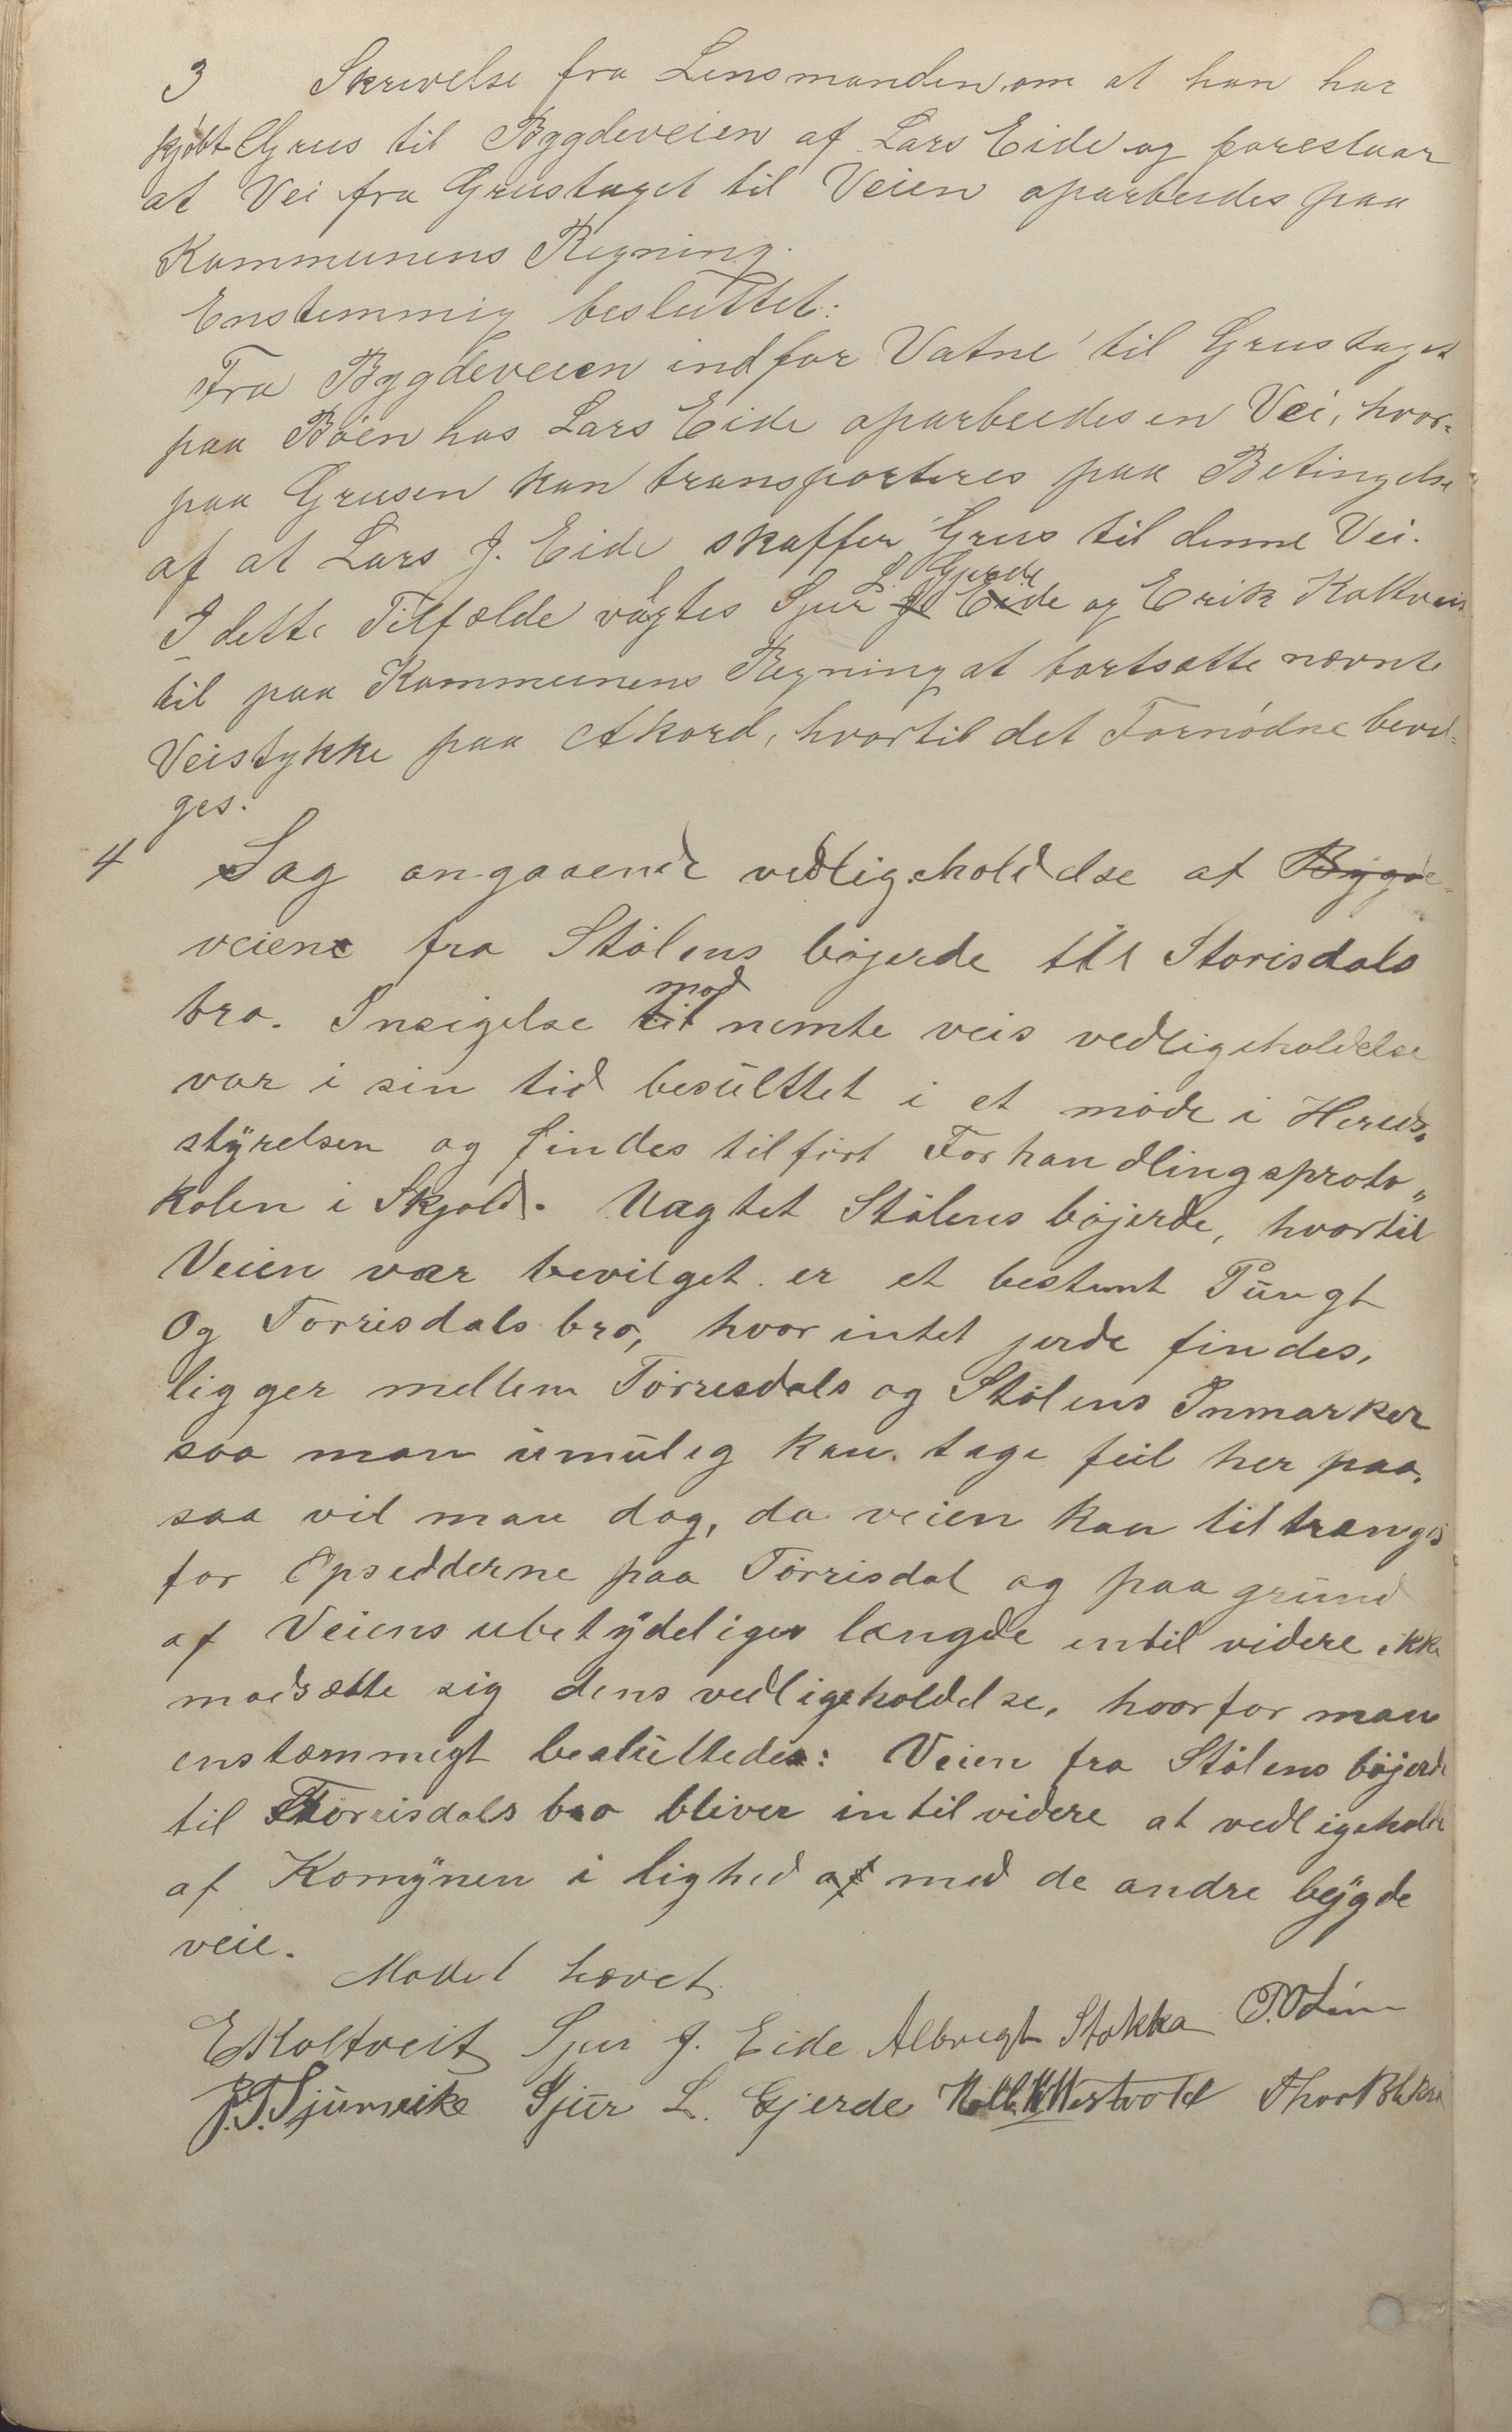 3 Skrivelse fra Lensmanden om at han har
kjøbt Grus til Bygdeveien af Lars Eide og foreslaar
at Vei fra Grustaget til Veien oparbeides paa
Kommunens Regning.
Enstemmig besluttet:
Fra Bygdeveien indfor Vatne til Grustaget
paa Bøen hos Lars Eide oparbeides en Vei, hvor-
paa Grusen kan transporteres paa Betingelse
af at Lars J. Eide skaffer Grus til denne Vei.
L. Gjerde
I dette Tilfælde vagtes Sjur J. Eide og Erik Koltveit
til paa Kommunens Regning at bortsætte nævnte
Veistykke paa Akord, hvortil det Fornødne bevil-
ges.
4 Sag angaaende vedligeholdelse af Bygde-
veiene fra Stølens bøjerde til Storisdals
mod
bro. Insigelse til nemte veis vedligeholdelse
var i sin tid besulttet i et møde i Heruds-
styrelsen og findes tilført Forhandlingsproto„
kolen i Skjold. Uagtet Stølens bøjerde, hvortil
Veien var bevilget er et bestemt Pungt
Og Torrisdals bro, hvor intet jerde findes,
ligger mellem Tørrisdals og Stølens Inmarker
saa man umulig kan tage feil her paa,
saa vil man dog, da veien kan tiltrænges
for Opsedderne paa Tørrisdal og paa grund
af Veiens ubetydeliger længde intil videre ikke
modsætte sig dens vedligeholdelse, hvorfor man
enstemmigt beslutteder: Veien fra Stølens bøjerde
til Tørrisdals bro bliver intil videre at vedligeholde
af Komynen i lighed af med de andre bygde
veie.
Mødet hævet
E Koltveit Sjur J. Eide Albregt Stokka
J. T. Tjurneike Sjur L. Gjerde Westvold Thor